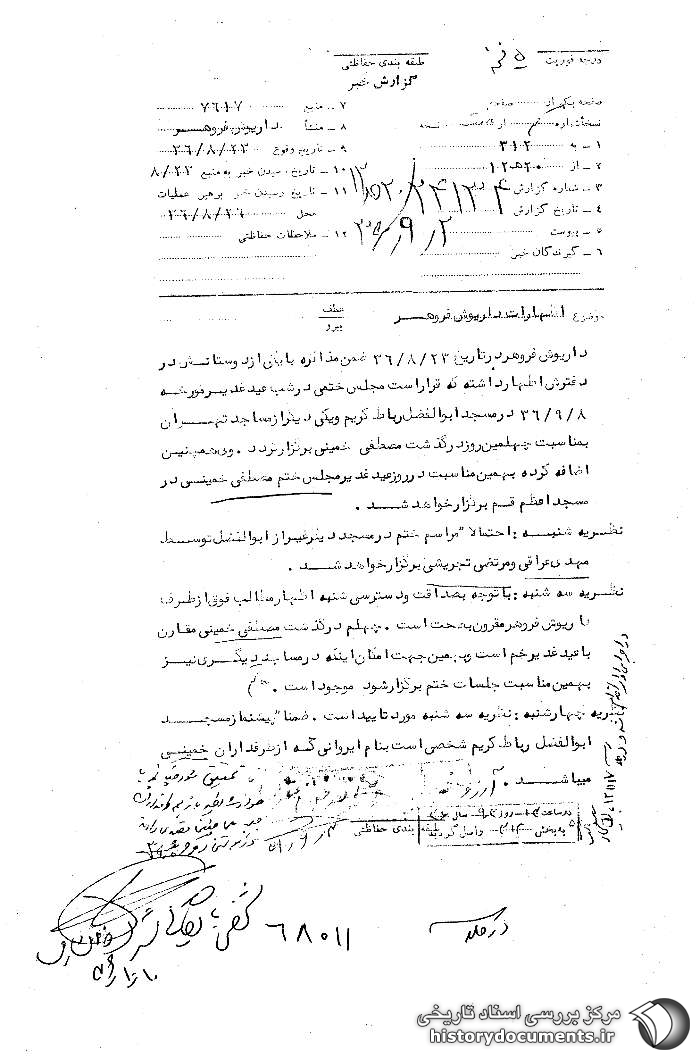 درجه فوریت
طبقه بندی حفاظتی
گزارش خبر
صفحه یکم از صفحه
نسخه شماره از نسخه
۱ ـ به ۳۱۲
۲ ـ از ۲۰ هـ ۱۲
۳ ـ شماره گزارش ۲۴۱۳۴ / ۲۰ هـ ۱۲
۴ ـ تاریخ گزارش ۲ / ۹ / ۳۶
۵ ـ پیوست
۶ ـ گیرندگان خبر
۷ ـ منبع ۷۶۱۷
۸ ـ منشأ داریوش فروهر
۹ ـ تاریخ وقوع ۳۶/۸/۲۳
۱۰ ـ تاریخ رسیدن خبر به منبع ۸/۲۳
۱۱ ـ تاریخ رسیدن خبر برهبر عملیات
محل ۳۶/۸/۲۶
۱۲ ـ ملاحظات حفاظتی
موضوع اظهارات داریوش فروهر
عطف
پیرو
داریوش فروهر در تاریخ ۳۶/۸/۲۳ ضمن مذاکره با یکی از دوستانش در
دفترش اظهار داشته که قرار است مجلس ختمی در شب عید غدیر مورخه
۳۶/۹/۸ در مسجد ابوالفضل رباط کریم ویکی دیگر از مساجد تهران
بمناسبت چهلمین روز درگذشت مصطفی خمینی برگزار گردد . وی همچنین
اضافه کرده بهمین مناسبت در روز عید غدیر مجلس ختم مصطفی خمینی در
مسجد اعظم قم برگزار خواهد شد .
نظریه شنبه : احتمالا" مراسم ختم در مسجد دیگر غیر از ابوالفضل توسط
مهدی عراقی ومرتضی تجریشی برگزار خواهد شد .
نظریه سه شنبه : با توجه بصداقت ودسترسی شنبه اظهار مطالب فوق از طرف
داریوش فروهر مقرون بصحت است . چهلم درگذشت مصطفی خمینی مقارن
با عید غدیر خم است وبهمین جهت امکان اینکه در مساجد دیگری نیز
بهمین مناسبت جلسات ختم برگزار شود موجود است .
نظریه چهارشنبه : نظریه سه شنبه مورد تایید است . ضمنا" پیشنماز مسجد
ابوالفضل رباط کریم شخصی است بنام ایروانی که از طرفداران خمینی
میباشد .
در ساعت روز سال
به بخش واصل گردید
طبقه بندی حفاظتی
۶۸۰۱۱
مرکز بررسی اسناد تاریخی
historydocuments.ir